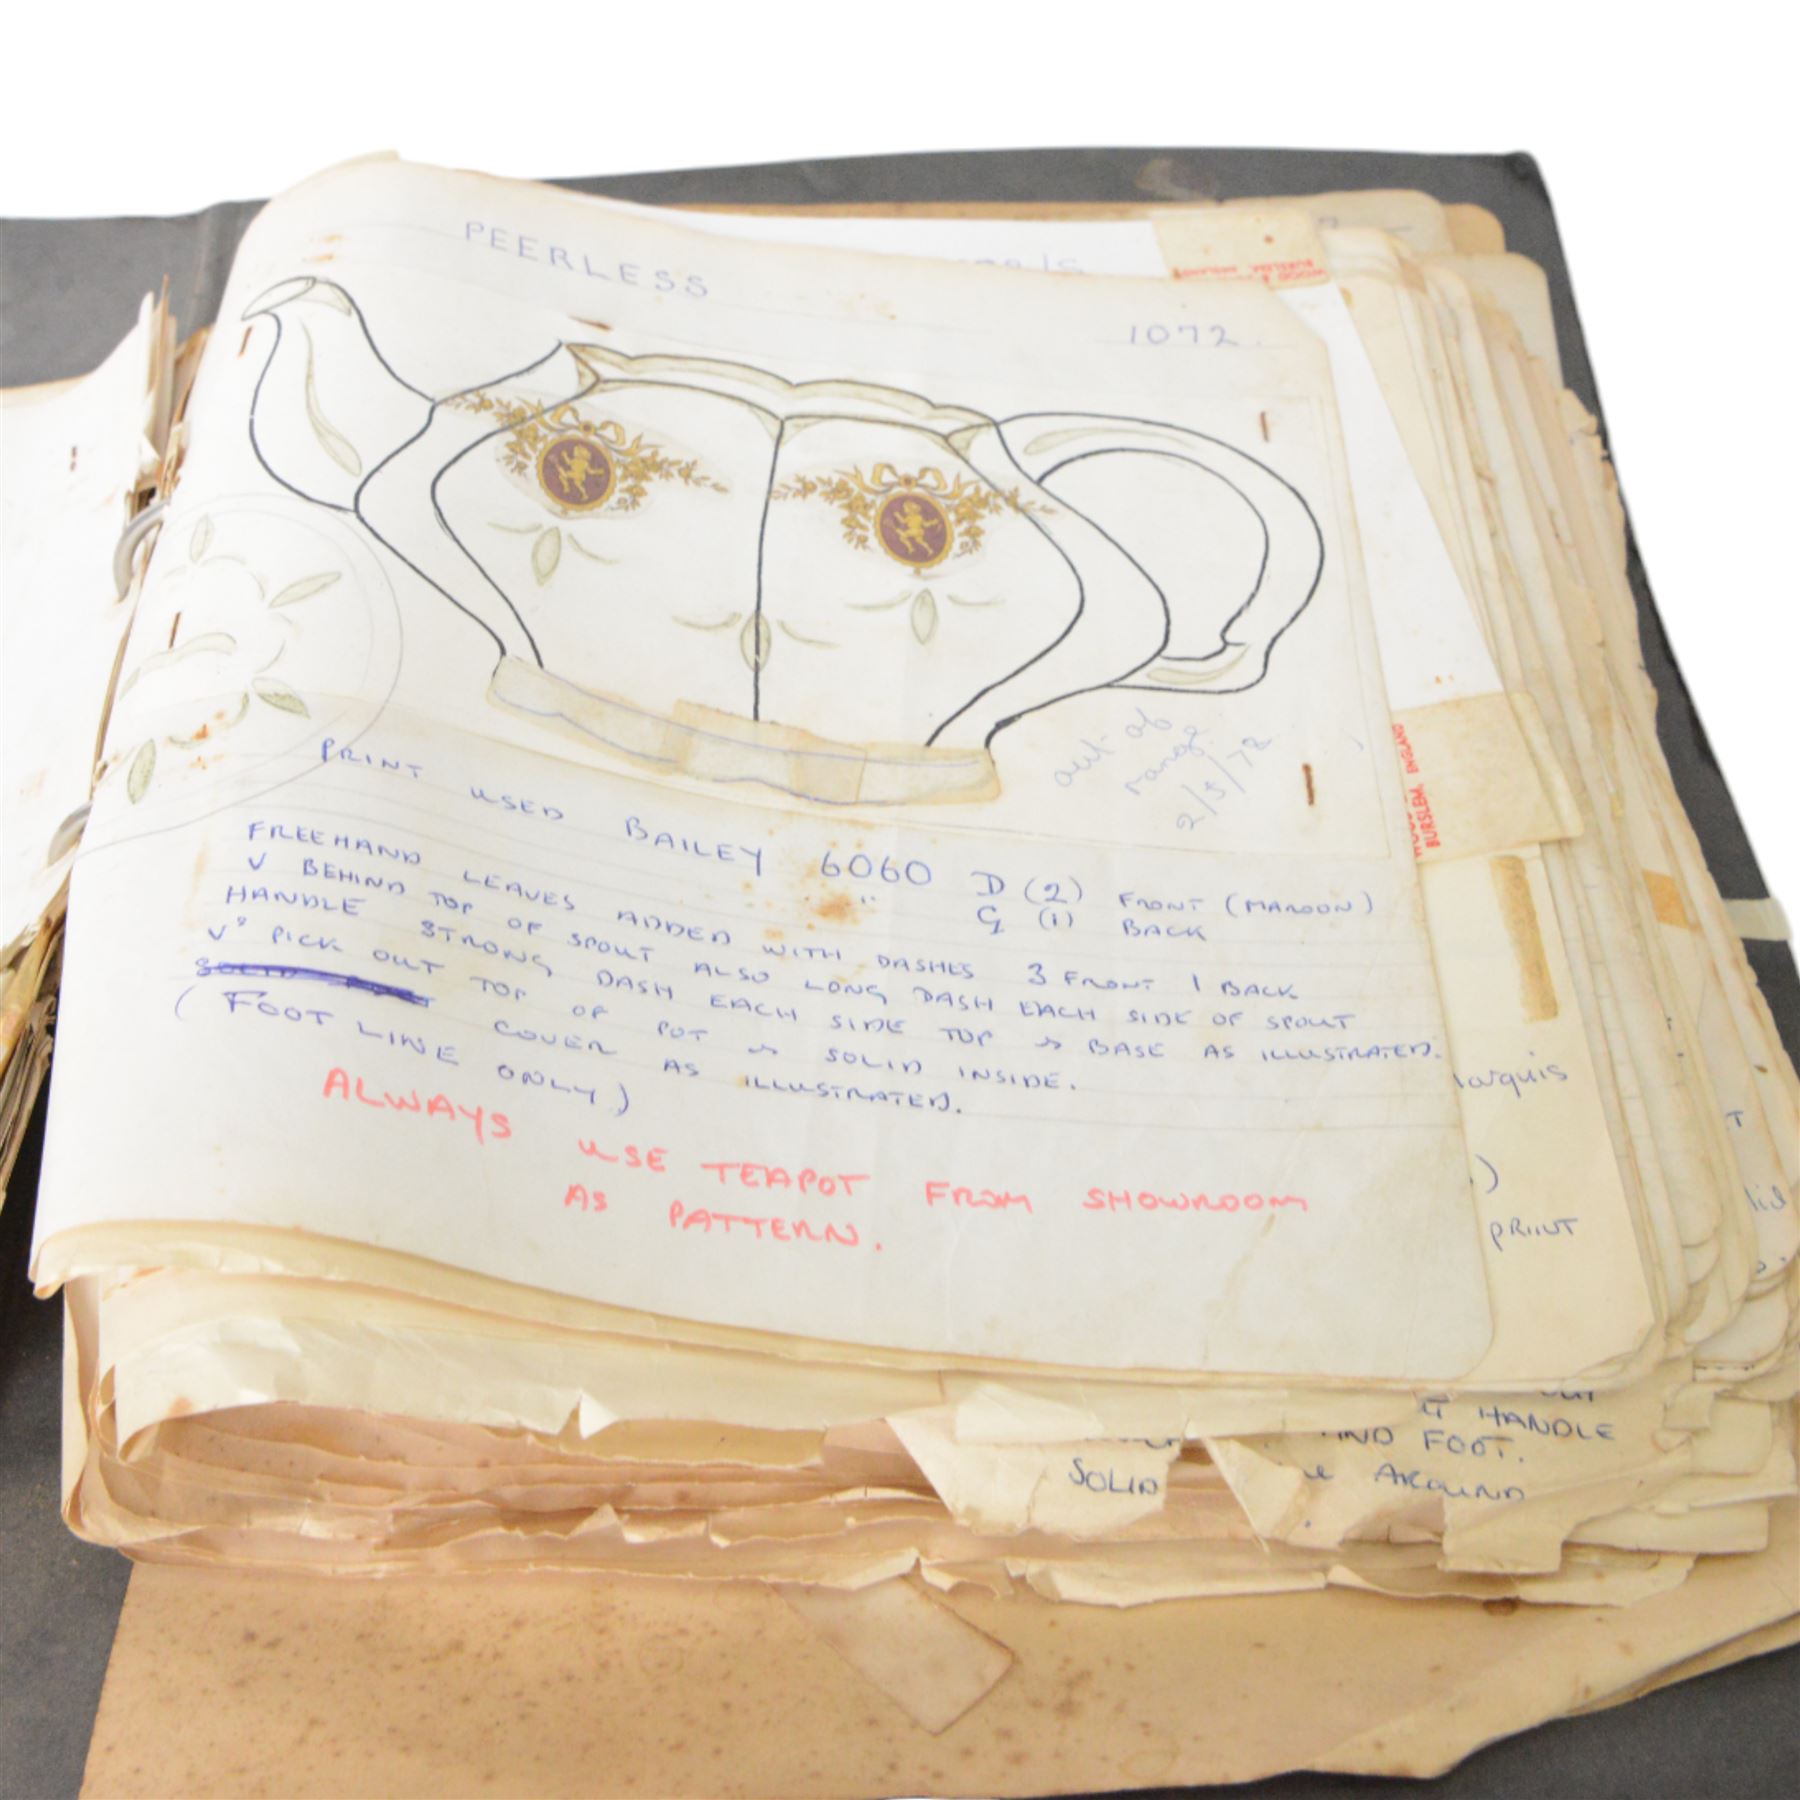 PEERLESS
1072.
out of
range
2/5/78
PRINT USED BAILEY 6060 D (2) FRONT (MAROON)
" G (1) BACK
FREEHAND LEAVES ADDED WITH DASHES 3 FRONT 1 BACK
V BEHIND TOP OF SPOUT ALSO LONG DASH EACH SIDE OF SPOUT
HANDLE STRONG DASH EACH SIDE TOP & BASE AS ILLUSTRATED.
V" PICK OUT TOP OF POT & SOLID INSIDE.
COVER AS ILLUSTRATED.
(FOOT LINE ONLY)
ALWAYS USE TEAPOT FROM SHOWROOM
AS PATTERN.
BURSLEM, ENGLAND
BURSLEM, ENGLAND
arquis
)
PRINT
T HANDLE
AND FOOT.
SOLID
AROUND